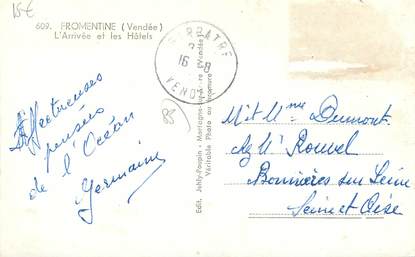 15€
609. FROMENTINE (Vendée)
L'Arrivée et les Hôtels
BARBATRE
16 -8
VENDÉE
Affectueuses
pensées
de l'Océan
Germaine
Edit. Jehly-Poupin - Mortagne-sur-Sèvre (Vendée)
Véritable Photo au Bromure
M. et Mme Dumont
chez Mr Rouvel
Bonnières sur Seine
Seine et Oise